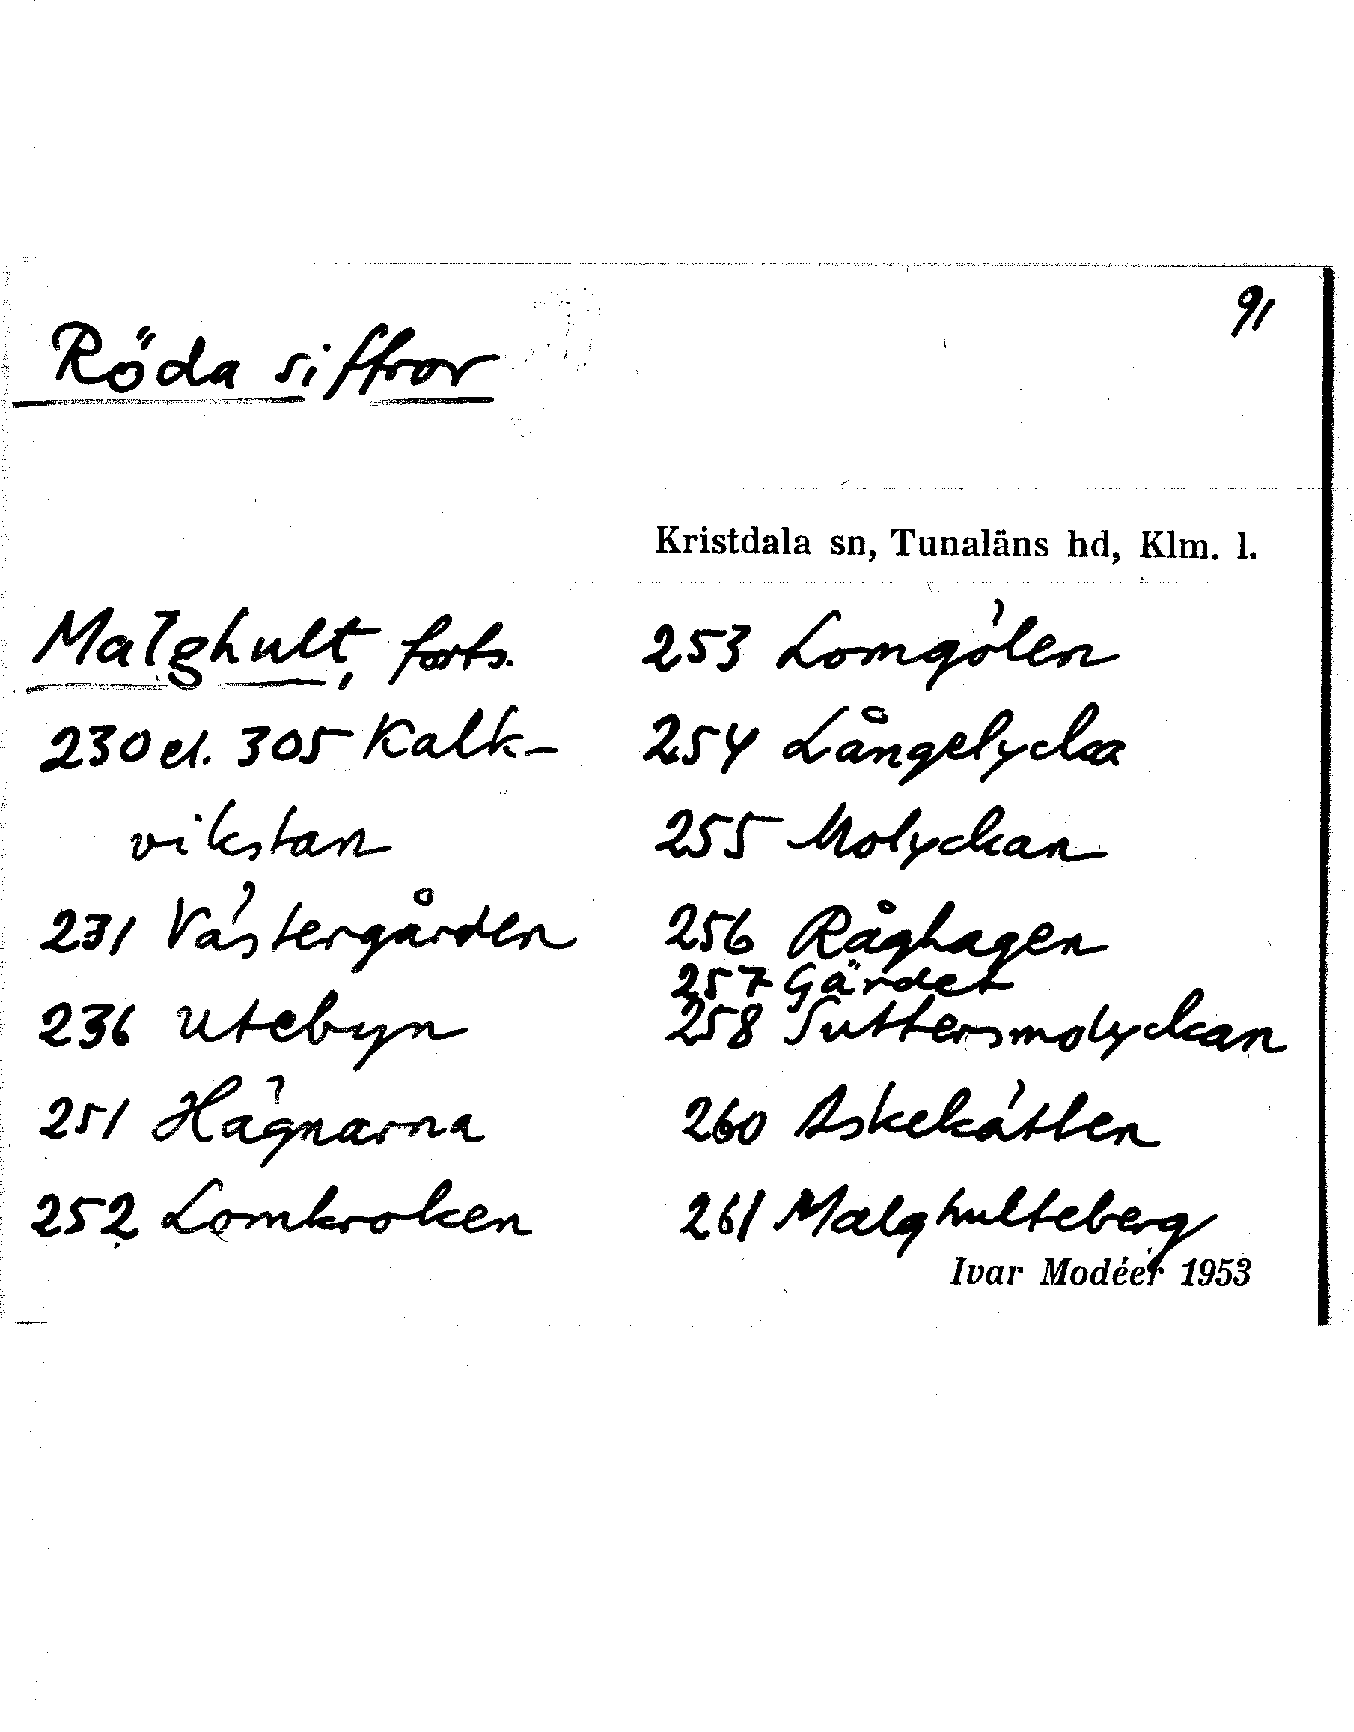 91
Röda siffror
Kristdala sn, Tunaläns hd, Klm. l.
Malghult, forts.
230 el. 305 Kalk-
vikstan
231 Västergården
236 Utebyn
251 Hägnarna
252 Lomkroken
253 Lomgölen
254 Långelycka
255 Molyckan
256 Råghagen
257 Gärdet
258 Suttersmolyckan
260 Askekätten
261 Malghulteberg
Ivar Modéer 1953